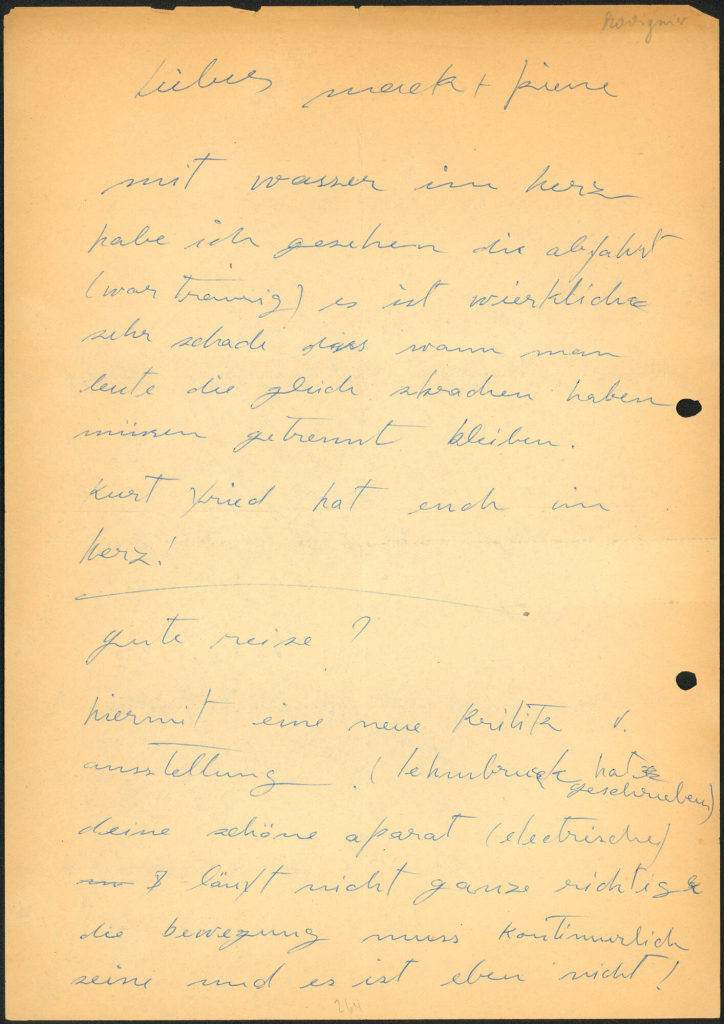 Liebes mack + piene
mit wasser im herz
habe ich gesehen die abfahrt
(war traurig) es ist wierklich
sehr schade dass wann man
leute die gleich sprachen haben
müssen getrennt bleiben.
Kurt fried hat euch im
herz!
gute reise ?
hiermit eine neue Kritik v.
ausstellung. (lehmbruck hat
geschrieben)
deine schöne aparat (electrische)
läuft nicht ganze richtig
die bewegung muss kontinuerlich
seine und es ist eben nicht!
264